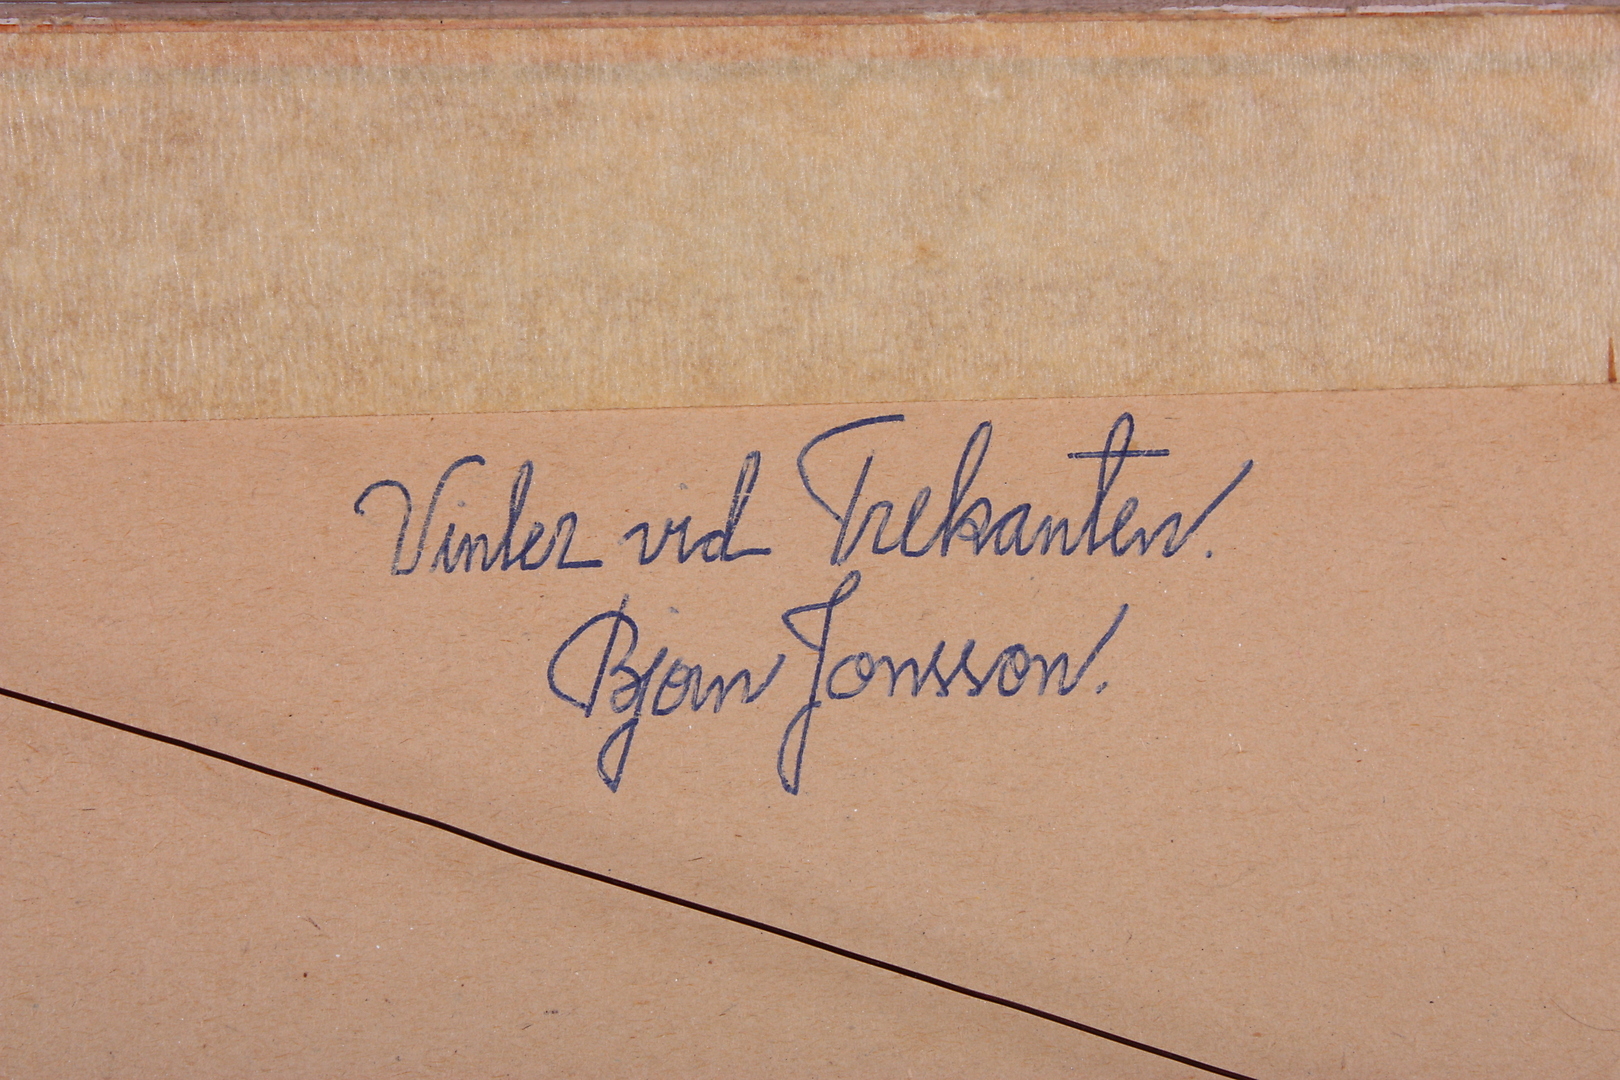 Vinter vid Trekanten.
Björn Jonsson.